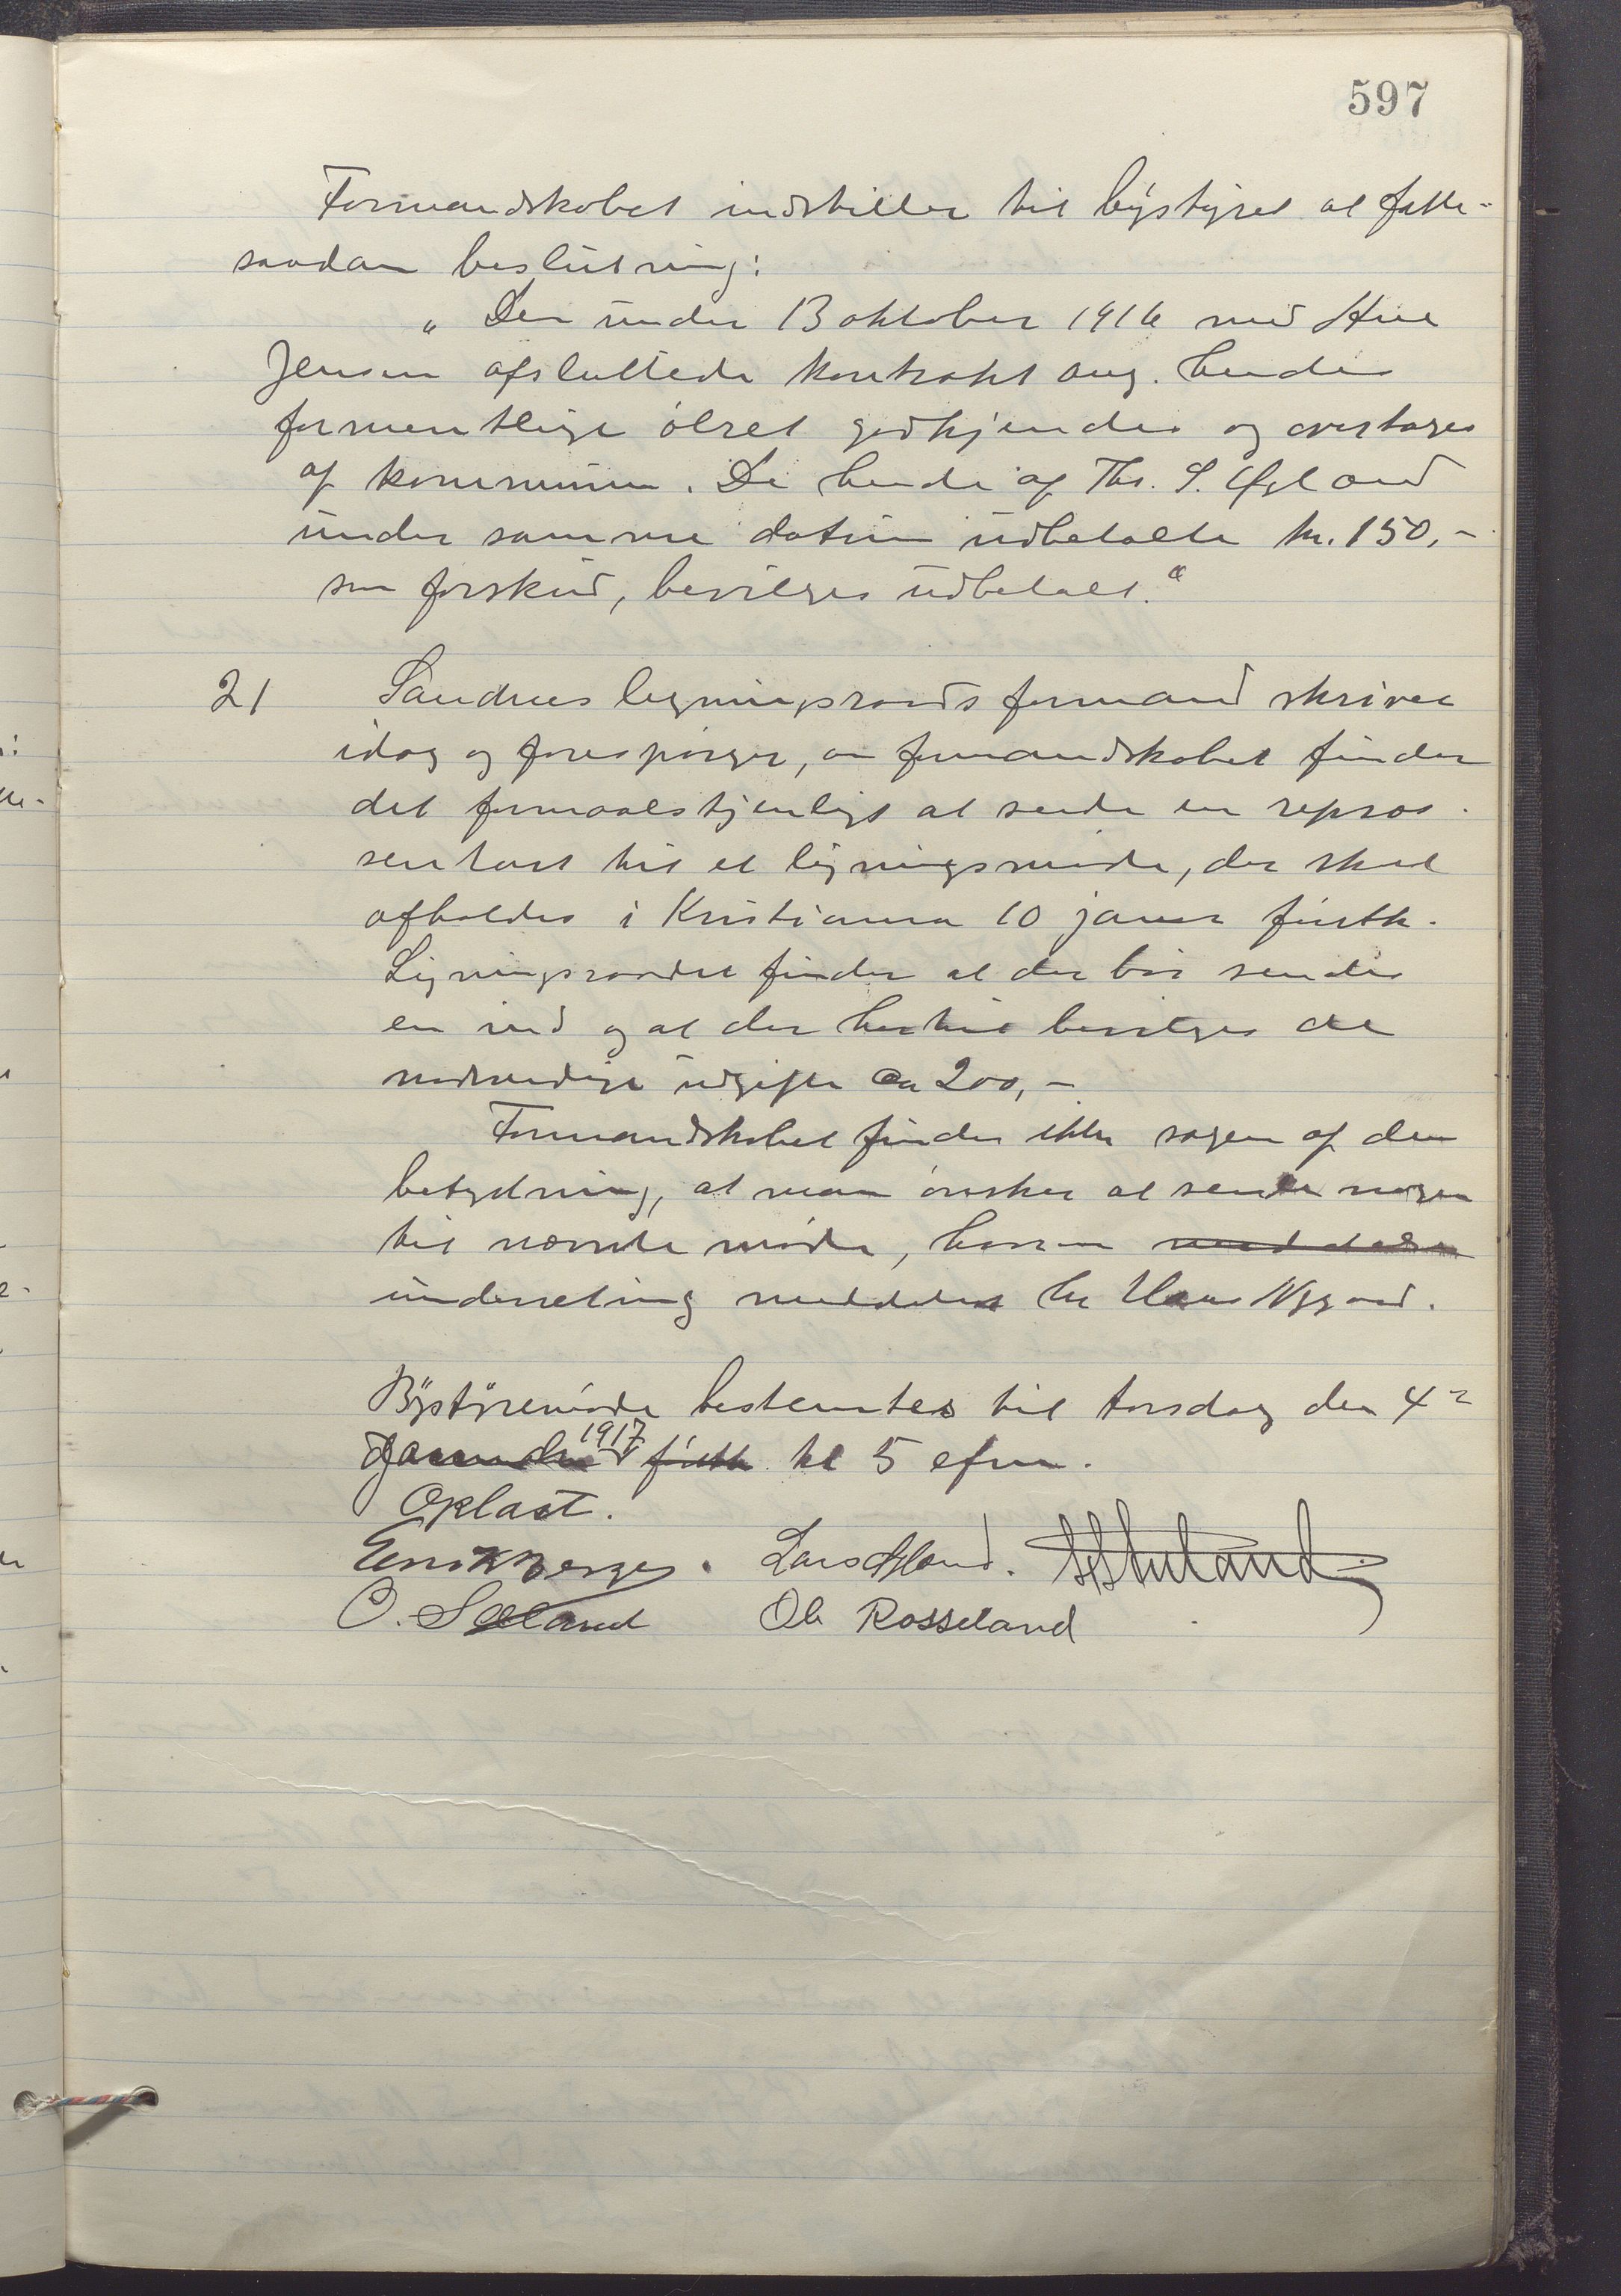 597
Formandskabet indstiller til bystyret at fatte
saadan beslutning:
„Den under 13 oktober 1916 med Hine
Jensen afsluttede kontrakt ang. hendes
formentlige ølret godkjendes og overtages
af kommunen. De hende af Ths. S. Øgland
under samme datum udbetalte kr. 150,-
som forskud, bevilges udbetalt."
21 Sandnes ligningsraads formand skriver
idag og forespørger, om formandskabet finder
det formaalstjenligt at sende en repræ-
sentant til et ligningsmøde, der skal
afholdes i Kristiania 10 januar førstk.
Ligningsraadet finder at der bør sendes
en ind og at der hertil bevilges de
nødvendige udgifter ca 200,-
Formandskabet finder ikke sagen af den
betydning, at man ønsker at sende nogen
til nævnte møde, hvorom meddeles
underretning meddeles hr Hans Nygaard.
Bystyremøde bestemtes til torsdag den 4de
januar 1917 førstk kl 5 efm.
Oplæst.
Lars Øgland.
O. Sæland Ole Rosseland